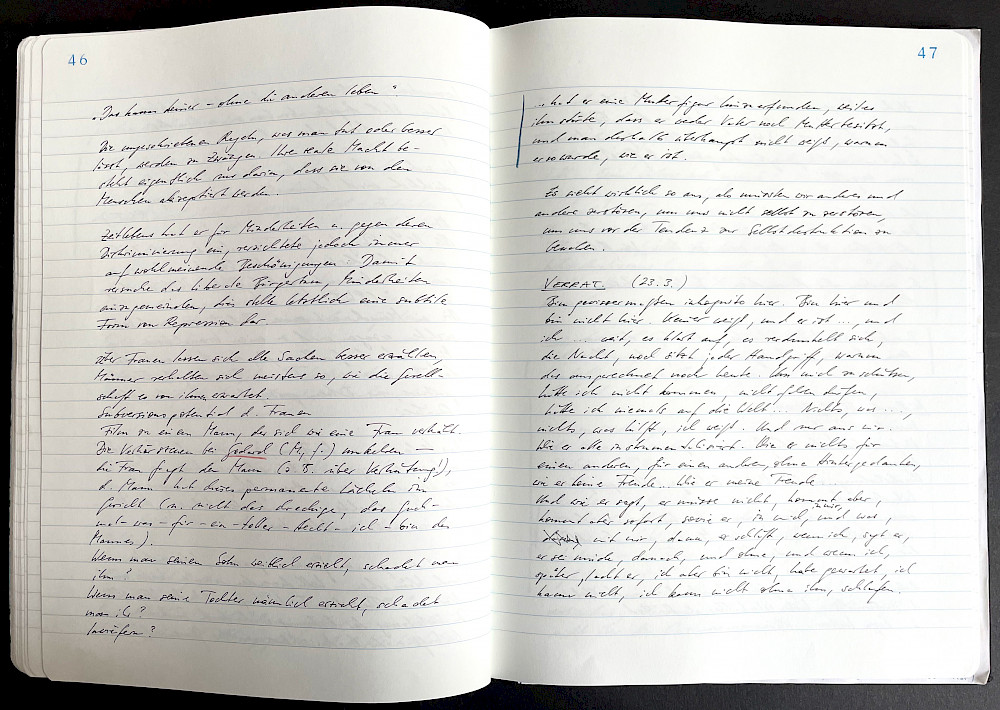 46
„Das kann keiner – ohne die anderen leben“.
Die ungeschriebenen Regeln, was man tut oder besser
lässt, werden zu Zwängen. Ihre reale Macht be-
steht eigentlich nur darin, dass sie von den
Menschen akzeptiert werden.
Zeitlebens trat er für Minderheiten u. gegen deren
Diskriminierung ein, verzichtete jedoch immer
auf wohlmeinende Beschönigungen. Damit
versuche das liberale Bürgertum, Minderheiten
einzugemeinden, dies stelle letztlich eine subtile
Form von Repression dar.
Über Frauen lassen sich alle Sachen besser erzählen,
Männer verhalten sich meistens so, wie die Gesell-
schaft es von ihnen erwartet.
Subversionspotential d. Frauen
Film zu einem Mann, der sich wie eine Frau verhält.
Die Verhörszenen bei Godard (M, f.) umkehren –
die Frau fragt den Mann (z.B. über Verhütung!),
d. Mann hat dieses permanente Lächeln im
Gesicht (m. nicht das dreckige, das guck-
mal-was-für-ein-toller-Hecht-ich-bin des
Mannes).
Wenn man seinen Sohn weiblich erzieht, schadet man
ihm?
Wenn man seine Tochter männlich erzieht, schadet
man ihr?
Inwiefern?
47
... hat er eine Mutterfigur hinzuerfunden, weil es
ihn störte, dass er weder Vater noch Mutter besitzt,
und man deshalb überhaupt nicht weiß, warum
er so wurde, wie er ist.
Es sieht wirklich so aus, als müssten wir anderes und
andere zerstören, um uns nicht selbst zu zerstören,
um uns vor der Tendenz zur Selbstdestruktion zu
bewahren.
VERRAT (23.3.)
Bin gewissermaßen inkognito hier. Bin hier und
bin nicht hier. Keiner weiß, und er ist ..., und
ich ... weit, es klart auf, es verdunkelt sich,
die Nacht, noch sitzt jeder Handgriff, warum
das ausgerechnet noch heute. Um mich zu schützen,
hätte ich nicht kommen, nicht fahren dürfen,
hätte ich niemals auf die Welt ... Nichts, was ...,
nichts, was hilft, ich weiß. Und nur aus
Wie er alle instrumentalisiert. Wie er nichts für
einen anderen, für einen andren, ohne Hintergedanken,
wie er keine Freude.. Wie er meine Freude..
Und wie er sagt, er müsse nicht, kommt aber,
kommt aber sofort, sowie er, in mich, in mir, und was,
mit mir, dann, er schläft, wenn ich, sagt er,
er sei müde, danach, und ohne, und wenn ich,
später, lacht er, ich aber bin nicht, habe gewartet, ich
kann nicht, ich kann nicht ohne ihn, schlafen.